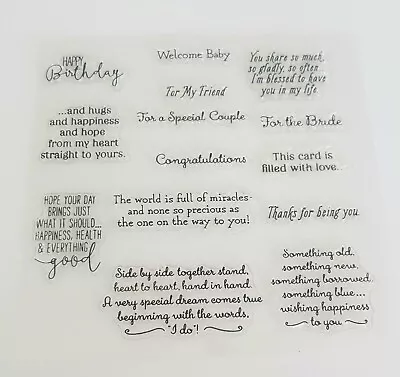 HAPPY
Birthday
Welcome Baby
You share so much,
so gladly, so often
I'm blessed to have
you in my life.
For My Friend
...and hugs
and happiness
and hope
from my heart
straight to yours.
For a Special Couple
For the Bride
Congratulations
This card is
filled with love.
HOPE YOUR DAY
BRINGS JUST
WHAT IT SHOULD...
HAPPINESS, HEALTH
& EVERYTHING
good
The world is full of miracles-
and none so precious as
the one on the way to you!
Thanks for being you.
Side by side together stand,
heart to heart, hand in hand.
A very special dream comes true
beginning with the words,
"I do"!
Something old,
something new,
something borrowed,
something blue...
wishing happiness
to you